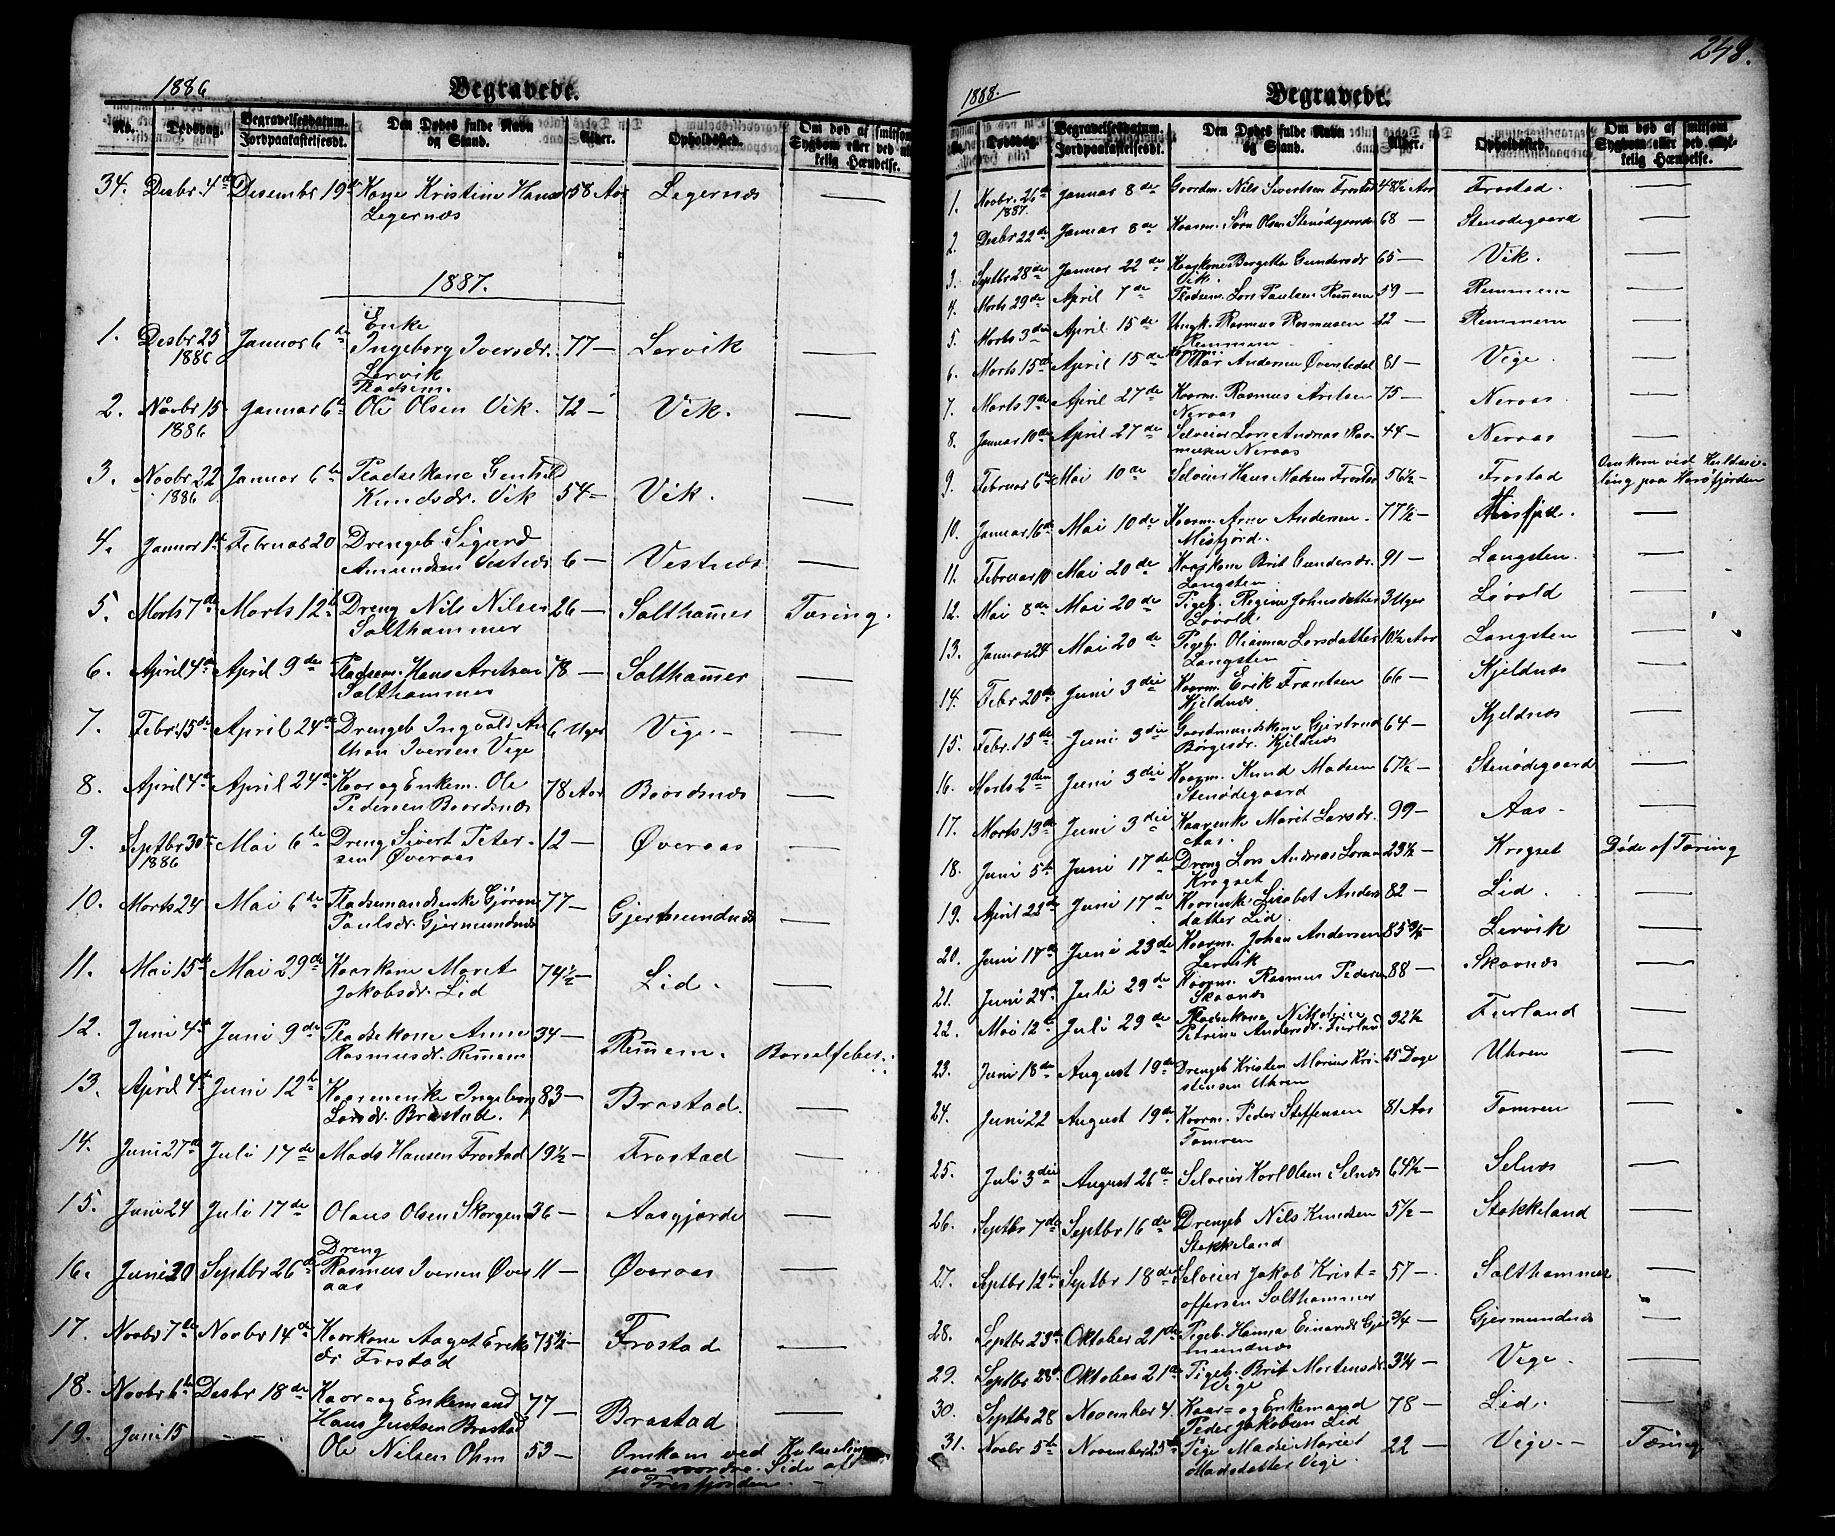 1886
Begravede.
No. Dødsdag. Begravelsesdatum. Jordpaakastelsesdt. Den Dødes fulde Navn og Stand. Alder. Opholdssted. Om død af smitsom Sygdom eller ved ulykkelig Hændelse.
34. Desbr. 4de Desember 19de Kone Kristine Hans 58 Aar Legernæs —
Legernæs
1887.
1. Desbr 25 Januar 6te Enke 77 — Lervik —
1886 Ingeborg Iversdr.
Lervik
2. Novbr 15 Januar 6te Pladsem. 72 — Vik. —
1886 Ole Olsen Vik.
3. Novbr 22 Januar 6te Pladsekone Gunhild 54 — Vik. —
1886 Knudsdr. Vik
4. Januar 1te Februar 20 Drengeb. Sigurd 6 — Vestnæs —
Amundsen Vestnæs
5. Marts 7de Marts 12te Dreng Nils Nilsen 26 — Salthammer Tæring.
Salthammer
6. April 4de April 9de Pladsem. Hans Aretsen 78 — Salthammer —
Salthammer
7. Febr. 15de April 24de Drengeb Ingvald An 6 Uger Vige —
thon Iversen Vige
8. April 4de April 24de Kaar og Enkem. Ole 78 Aar Baardsnæs —
Pedersen Baardsnæs
9. Septbr 30te Mai 6te Dreng Sivert Peter 12 — Øveraas —
1886 sen Øveraas
10. Marts 24 Mai 6te Pladsemandsenke Gjøron 77 — Gjermundnæs —
Paulsdr. Gjermundnæs
11. Mai 15de Mai 29de Kaarkone Maret 74½ — Lid. —
Jakobsdr. Lid
12. Juni 4de Juni 9de Pladsekone Anne 34 — Remmem. Barselfeber.
Rasmusdr. Remmem
13. April 4de Juni 12te Kaarmenke Ingeborg 83 — Brastad. —
Larsdr. Brastad.
14. Juni 27de Juli 17de Mads Hansen Frostad 19½ — Frostad —
15. Juni 24 Juli 17de Olaus Olsen Skorgen 36 — Aasgjerde —
16. Juni 20 Septbr 26de Dreng
Rasmus Iversen Øver 11 — Øveraas —
aas
17. Novbr 7de Novbr 14de Kaarkone Aaget Eriks 75½ — Frostad —
dr Frostad
18. Novbr 6te Desbr 18de Kaar= og Enkemand 77 — Brastad —
Hans Justsen Brastad
19. Juni 15 — Ole Nilsen Ohm 53 — Omkom ved Kulseiling
paa nordre Side af
Tresfjorden. —
248.
1888.
Begravede.
No. Dødsdag. Begravelsesdatum. Jordpaakastelsesdt. Den Dødes fulde Navn og Stand. Alder. Opholdssted. Om død af smitsom Sygdom eller ved ulykkelig Hændelse.
1. Novbr. 26de Januar 8de Gaardm. Nils Sivertsen Frostad 48½ Aar Frostad. —
1887.
2. Desbr 22de Januar 8de Kaarm. Sørn Olsen Stenødegaard 68 — Stenødegaard —
3. Septbr 28de Januar 22de Kaarkone Bergitta Gundersdr 65 — Vik. —
Vik.
4. Marts 29de April 7de Pladsem. Lars Paulsen Remmem 59 — Remmem —
5. Marts 3die April 15de Ungk. Rasmus Rasmusen 22 — Remmem —
Remmem
6. Marts 15de April 15de Kaarm. Ottar Andersen Øvrestedal 81 — Vige. —
7. Marts 9de April 27de Kaarm. Rasmus Aretsen 75 — Neraas. —
Neraas
8. Januar 10de April 27de Selveier Lars Andreas Ras 44 — Neraas —
musen Neraas
9. Februar 6te Mai 10de Selveier Hans Madsen Frostad 56½ — Frostad Omkom ved Kuldsei-
ling paa Norsfjorden
10. Januar 16de Mai 10de Kaarm. Arne Andersen 77½ — Misfjord. —
Misfjord.
11. Februar 10 Mai 20de Kaarkone Brit Gundersdr. 91 — Langsten. —
Langsten
12. Mai 8de Mai 20de Pigeb. Regine Johnsdatter 3 Uger Løvold —
Løvold.
13. Januar 24 Mai 20de Pigeb. Olianna Larsdatter 10½ Aar Langsten —
Langsten
14. Febr 20de Juni 3die Kaarm. Erik Frantsen 66 — Kjeldnæs —
Kjeldnæs.
15. Febr. 15de Juni 3die Gaardmandskone Gjertrud 64 — Kjeldnæs —
Børgesdr. Kjeldnæs
16. Marts 2den Juni 3die Kaarm. Knud Madsen 67½ — Stenødegaard —
Stenødegaard
17. Marts 13de Juni 3die Kaarenk. Marit Larsdr. 99 — Aas — —
Aas.
18. Juni 5te Juni 17de Dreng Lars Andreas Larsen 23½ — Krogset Døde af Tæring
Krogset
19. April 22de Juni 17de Kaarenk. Lisabet Anders 82 — Lid. —
datter Lid.
20. Juni 17de Juni 23de Kaarm. Johan Andersen 85¾ — Lervik —
Lervik
21. Juni 24de Juli 29de Kaarm. Rasmus Pedersen 88 — Skaanæs —
Skaanæs
22. Mai 12te Juli 29de Pladsekone Nikoline 32½ Furland —
Petrine Andersdr. Furland
23. Juni 18de August 19de Drengeb Kristen Marius Kri- 25 Dage Uhren —
stensen Uhren
24. Juni 22 August 19de Kaarm. Peder Steffensen 81 Aar Tomren —
Tomren
25. Juli 3die August 26de Selveier Karl Olsen Selnæs 64½ — Selnæs —
26. Septbr 7de Septbr 16de Drengeb Nils Knudsen 5½ — Stokkeland —
Stokkeland
27. Septbr 12te Septbr 18de Selveier Jakob Krist= 57 — Salthammer —
offersen Salthammer
28. Septbr 23de Oktober 21de Pigeb. Hanna Einarsdr Gjer ¾ — Gjermundnæs —
mundnæs
29. Septbr 28de Oktober 21de Pigeb. Brit Mortensdr. 3¼ — Vige. —
Vige
30. Septbr 28 November 4. Kaar= og Enkemand 78 — Lid. —
Peder Jakobsen Lid
31. Novbr 5te November 25de Pige Madsi Mariet 22 — Vige. — Tæring
Madsdatter Vige.